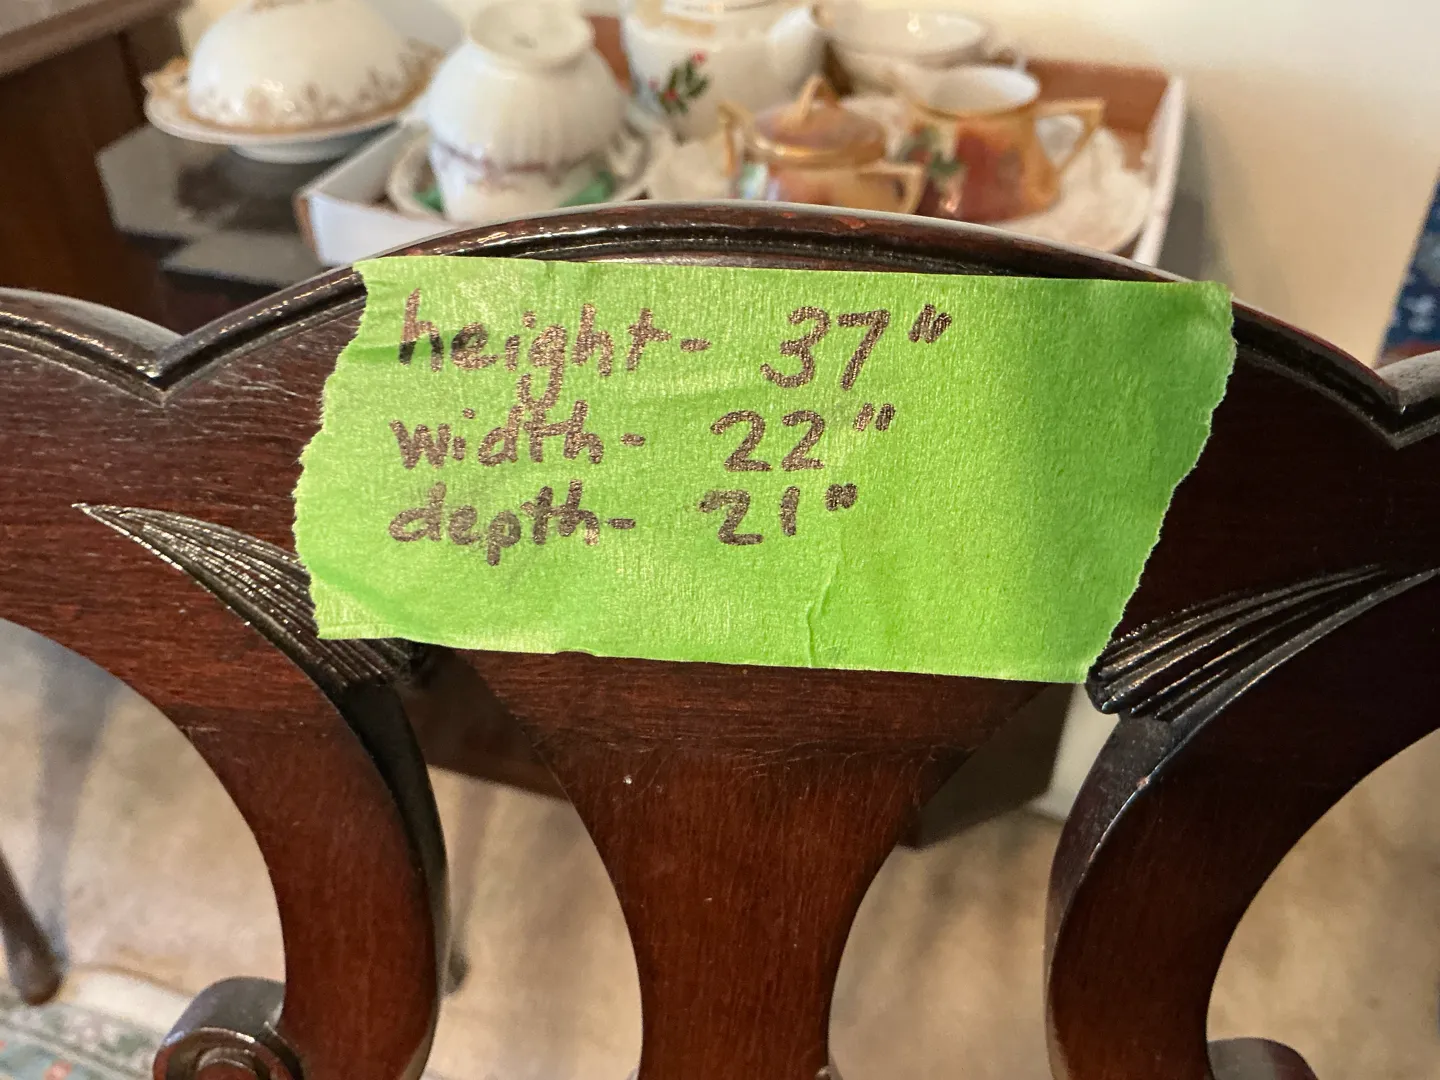 height- 37"
width- 22"
depth- 21"